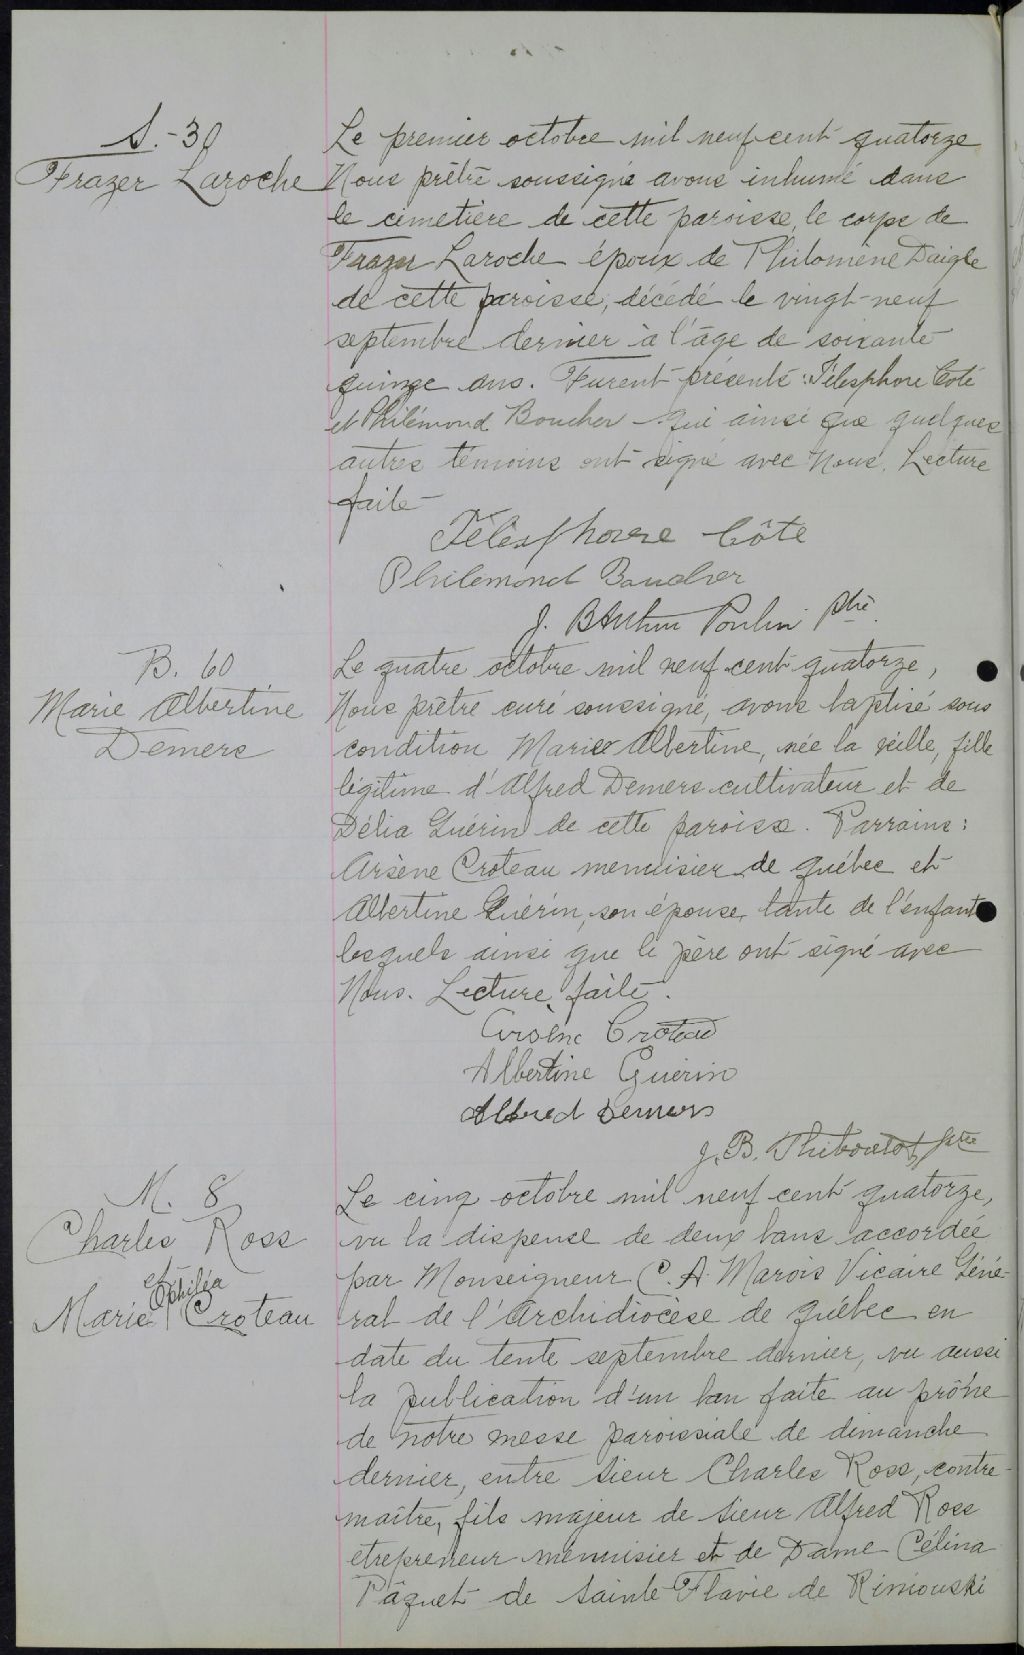 S. - 30
Frazer Laroche
Le premier octobre mil neuf cent quatorze
Nous prêtre soussigné avons inhumé dans
le cimetière de cette paroisse, le corps de
Frazer Laroche époux de Philomène Daigle
de cette paroisse, décédé le vingt-neuf
septembre dernier à l'âge de soixante
quinze ans. Furent présents : Télesphore Coté
et Philémond Boucher qui ainsi que quelques
autres témoins ont signé avec Nous. Lecture
faite
Télesphore Côté
Philemond Boucher
J. B Arthur Poulin Ptre.
B. 60
Marie Albertine
Demers
Le quatre octobre mil neuf cent quatorze,
Nous prêtre curé soussigné, avons baptisé sous
condition Marie Albertine, née la veille, fille
légitime d'Alfred Demers cultivateur et de
Délia Guérin de cette paroisse. Parrains :
Arsène Croteau menuisier de Québec et
Albertine Guérin, son épouse, tante de l'enfant
lesquels ainsi que le père ont signé avec
Nous. Lecture faite.
Arsène Croteau
Albertine Guerin
Alfred Demers
J. B. Thiboutot, ptre
M. 8
Charles Ross
et
Ophiléa
Marie Croteau
Le cinq octobre mil neuf cent quatorze,
vu la dispense de deux bans accordée
par Monseigneur C. A. Marois Vicaire Géné-
ral de l'Archidiocèse de Québec en
date du tente septembre dernier, vu aussi
la publication d'un ban faite au prône
de notre messe paroissiale de dimanche
dernier, entre Sieur Charles Ross, contre-
maître, fils majeur de Sieur Alfred Ross
etrepreneur menuisier et de Dame Célina
Pâquet de Sainte Flavie de Rimouski